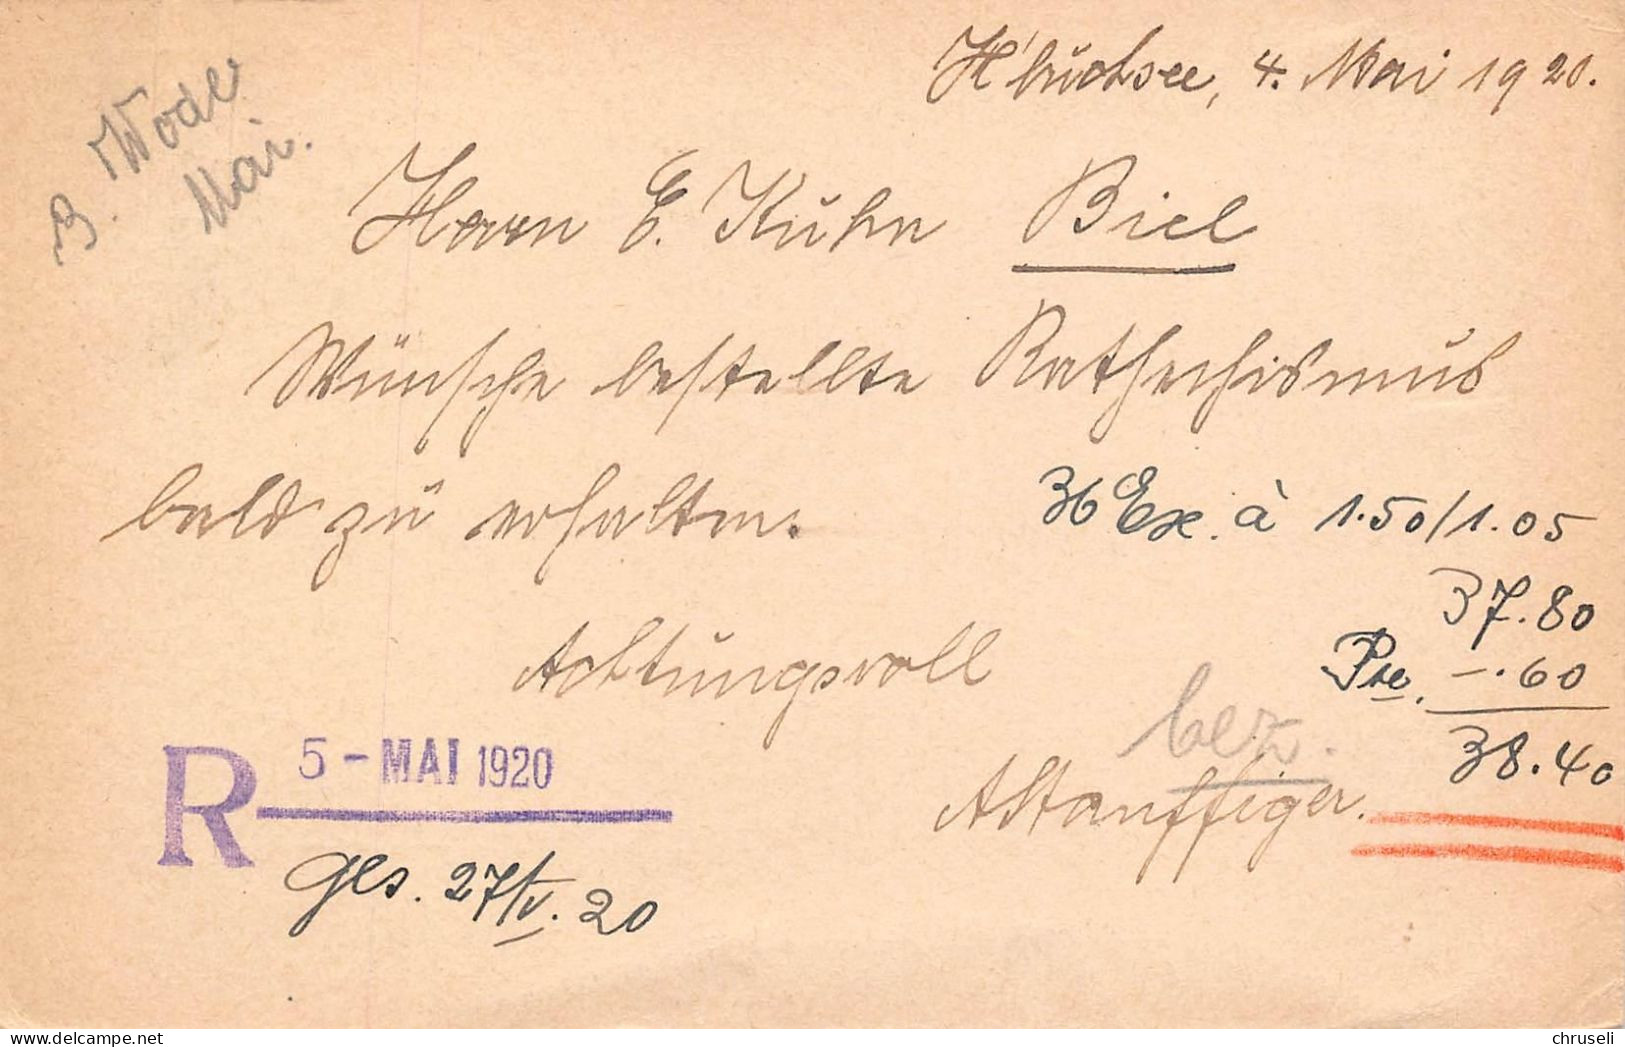 H'buchsee, 4. Mai 1920.
3. Mai.
Herrn E. Kuhn Biel
Wünsche bestellte Kathechismus
bald zu erhalten.
36 Ex. à 1.50/1.05
37.80
Achtungsvoll
-.60
bez.
38.40
R 5 - MAI 1920
ges. 27/V. 20
chruseli